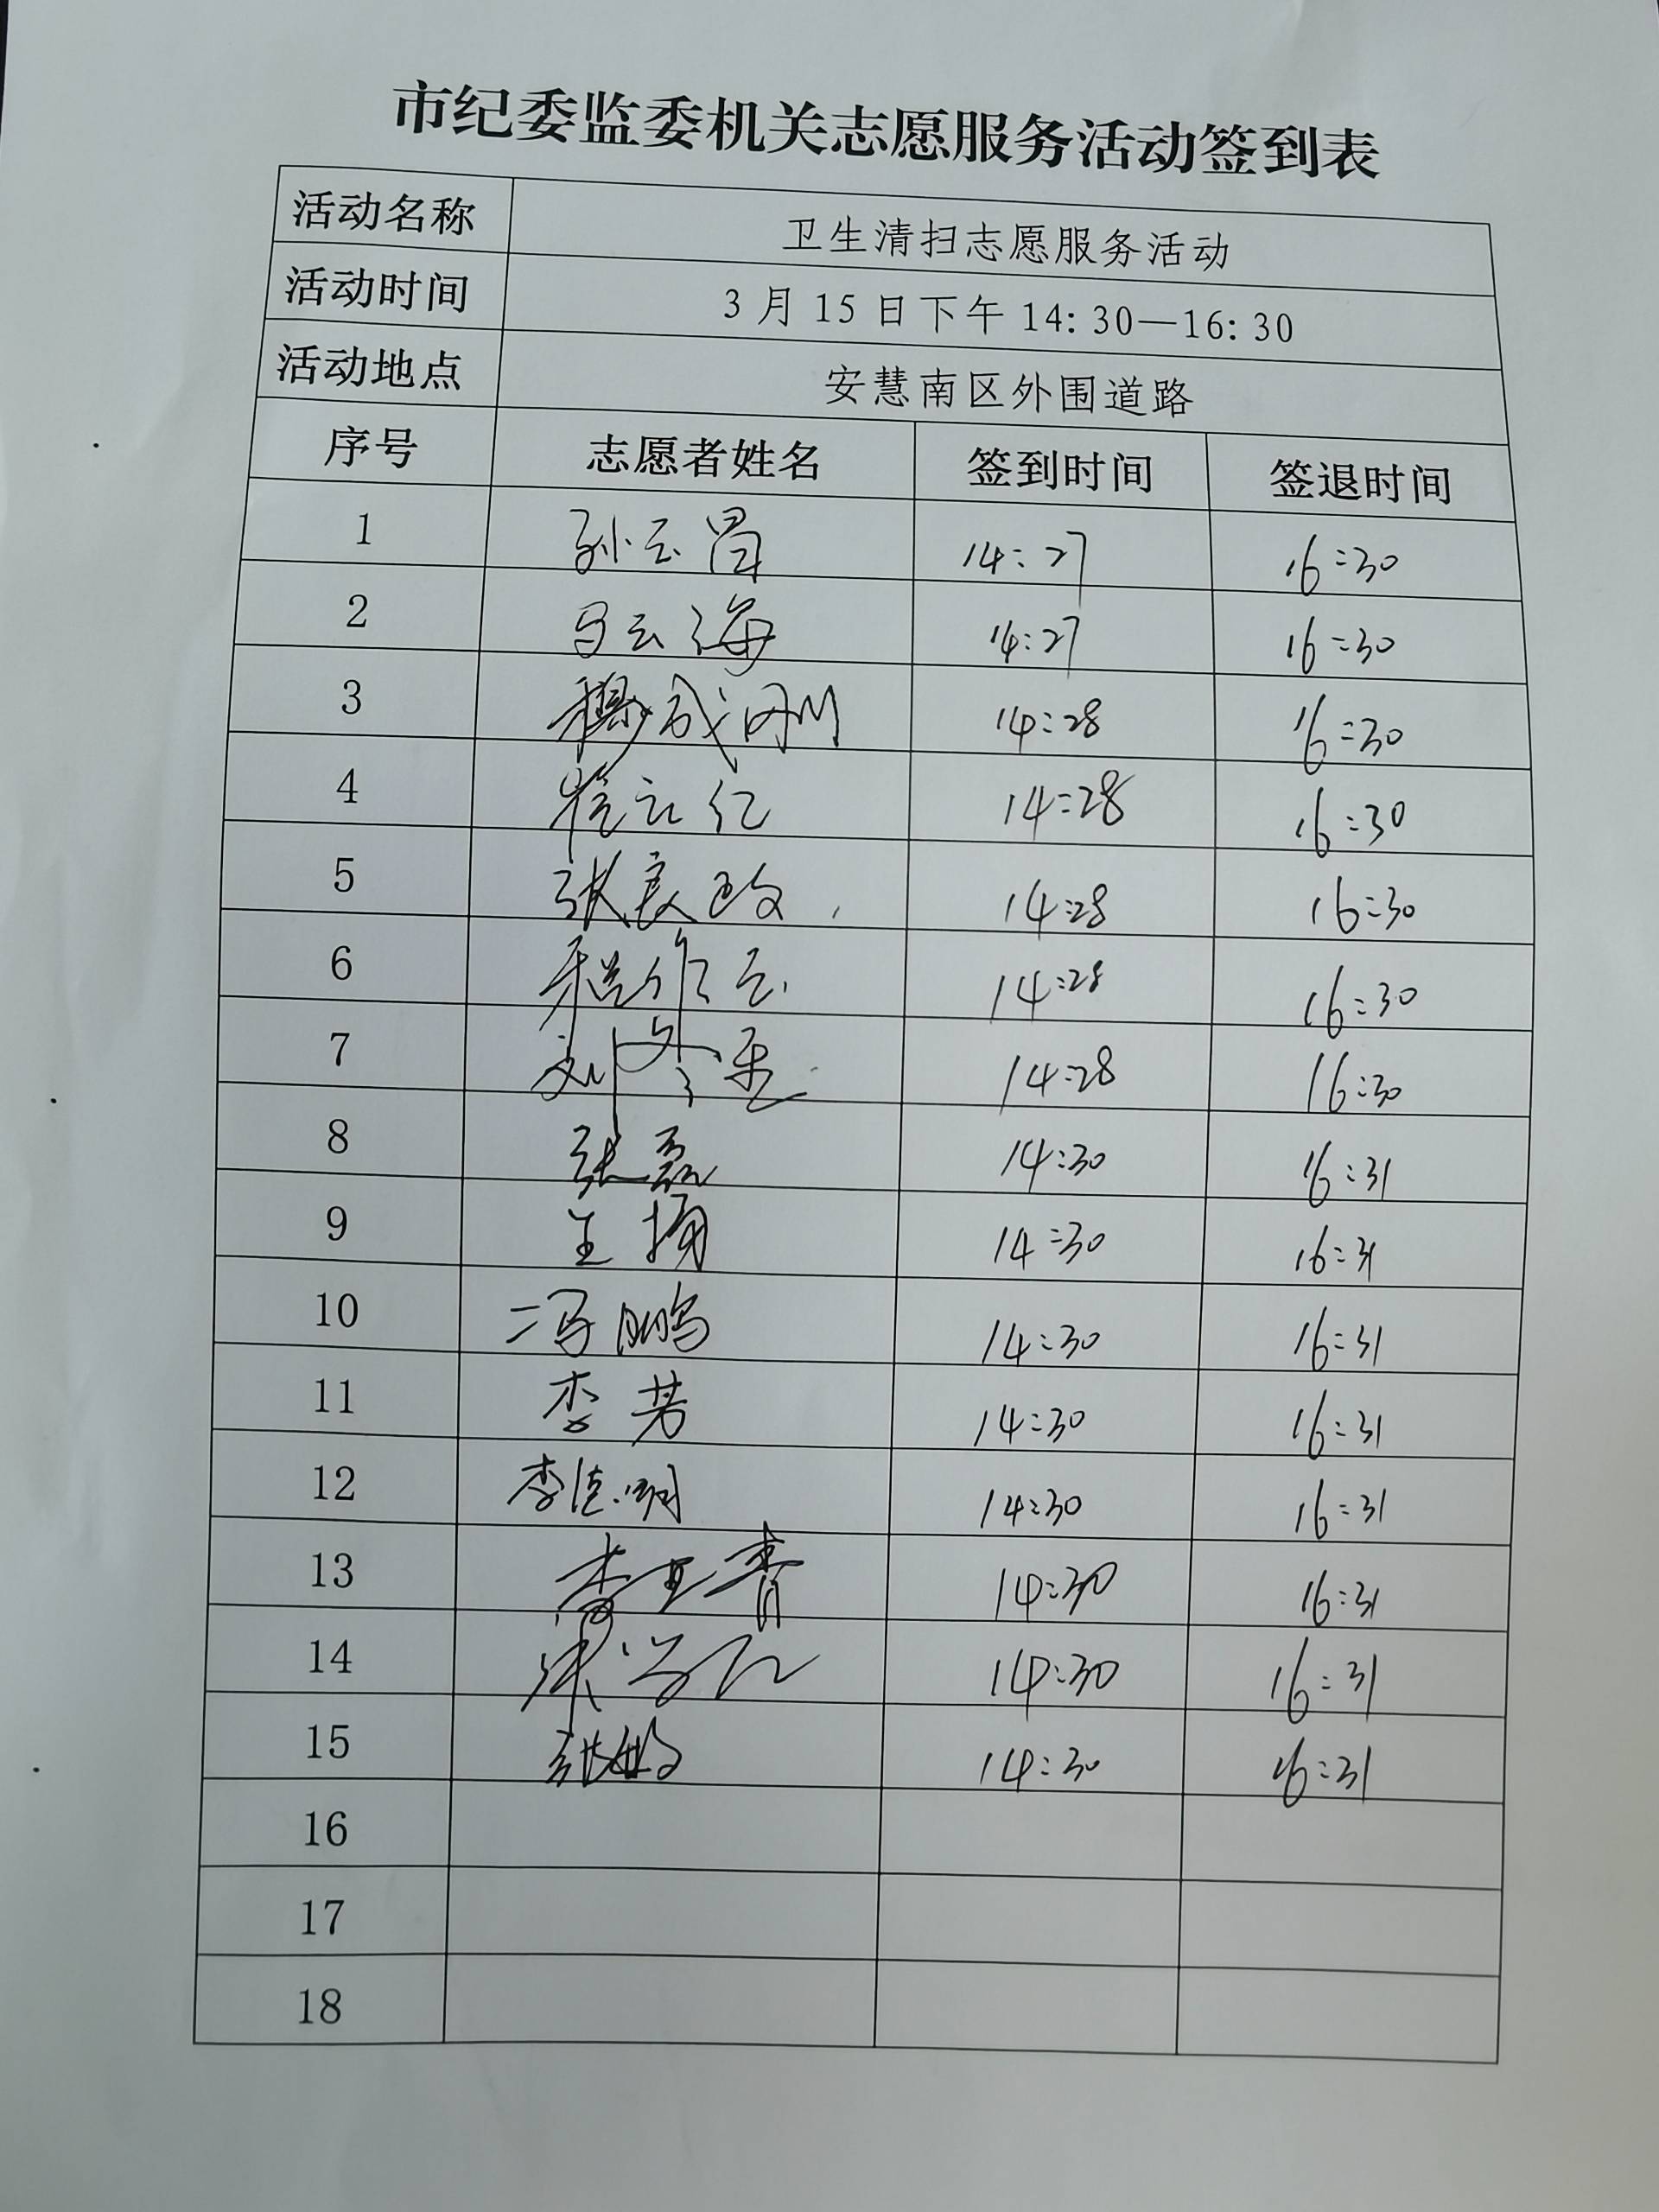 市纪委监委机关志愿服务活动签到表
活动名称 卫生清扫志愿服务活动
活动时间 3月15日下午14:30—16:30
活动地点 安慧南区外围道路
序号 志愿者姓名 签到时间 签退时间
1 孙玉昌 14:27 16:30
2 马云海 14:27 16:30
3 穆成刚 14:28 16:30
4 崔红仁 14:28 16:30
5 张 14:28 16:30
6 程作玉 14:28 16:30
7 刘 14:28 16:30
8 张磊 14:30 16:31
9 王 14:30 16:31
10 冯鹏 14:30 16:31
11 李芳 14:30 16:31
12 李德明 14:30 16:31
13 李玉青 14:30 16:31
14 张 14:30 16:31
15 张 14:30 16:31
16
17
18